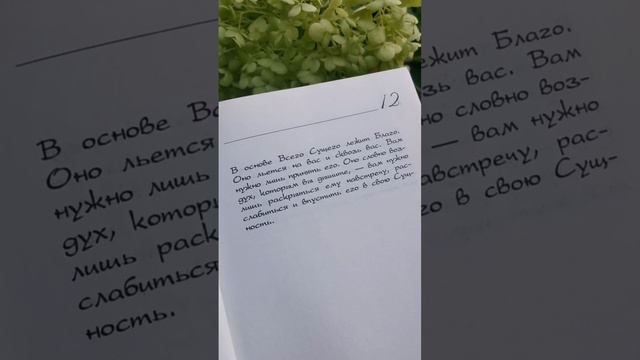 12
В основе Всего Сущего лежит Благо.
Оно льется на вас и сквозь вас. Вам
нужно лишь принять его. Оно словно воз-
дух, которым вы дышите, — вам нужно
лишь раскрыться ему навстречу, рас-
слабиться и впустить его в свою Сущ-
ность.